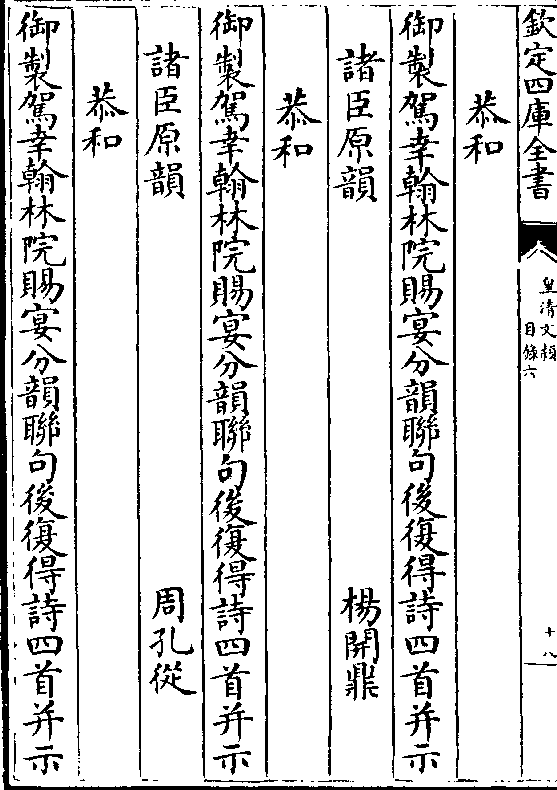 欽定四庫全書
皇清文頴
目錄六
十八
恭和
御製駕幸翰林院賜宴分韻聯句後復得詩四首并示
諸臣原韻 楊開鼎
恭和
御製駕幸翰林院賜宴分韻聯句後復得詩四首并示
諸臣原韻 周孔從
恭和
御製駕幸翰林院賜宴分韻聯句後復得詩四首并示